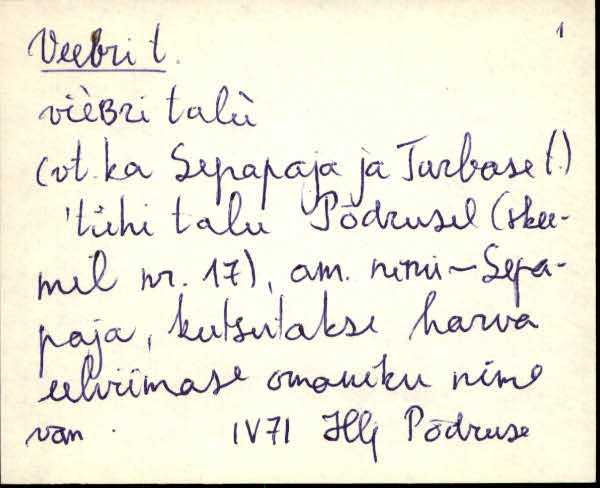 1
Veebri t.
vièʙri talù
(vt. ka Sepapaja ja Turbase t.)
'tühi talu Põdrusel (skee-
mil nr. 17), am. nimi ~ Sepa-
paja, kutsutakse harva
eelviimase omaniku nime
IV 71 Põdruse